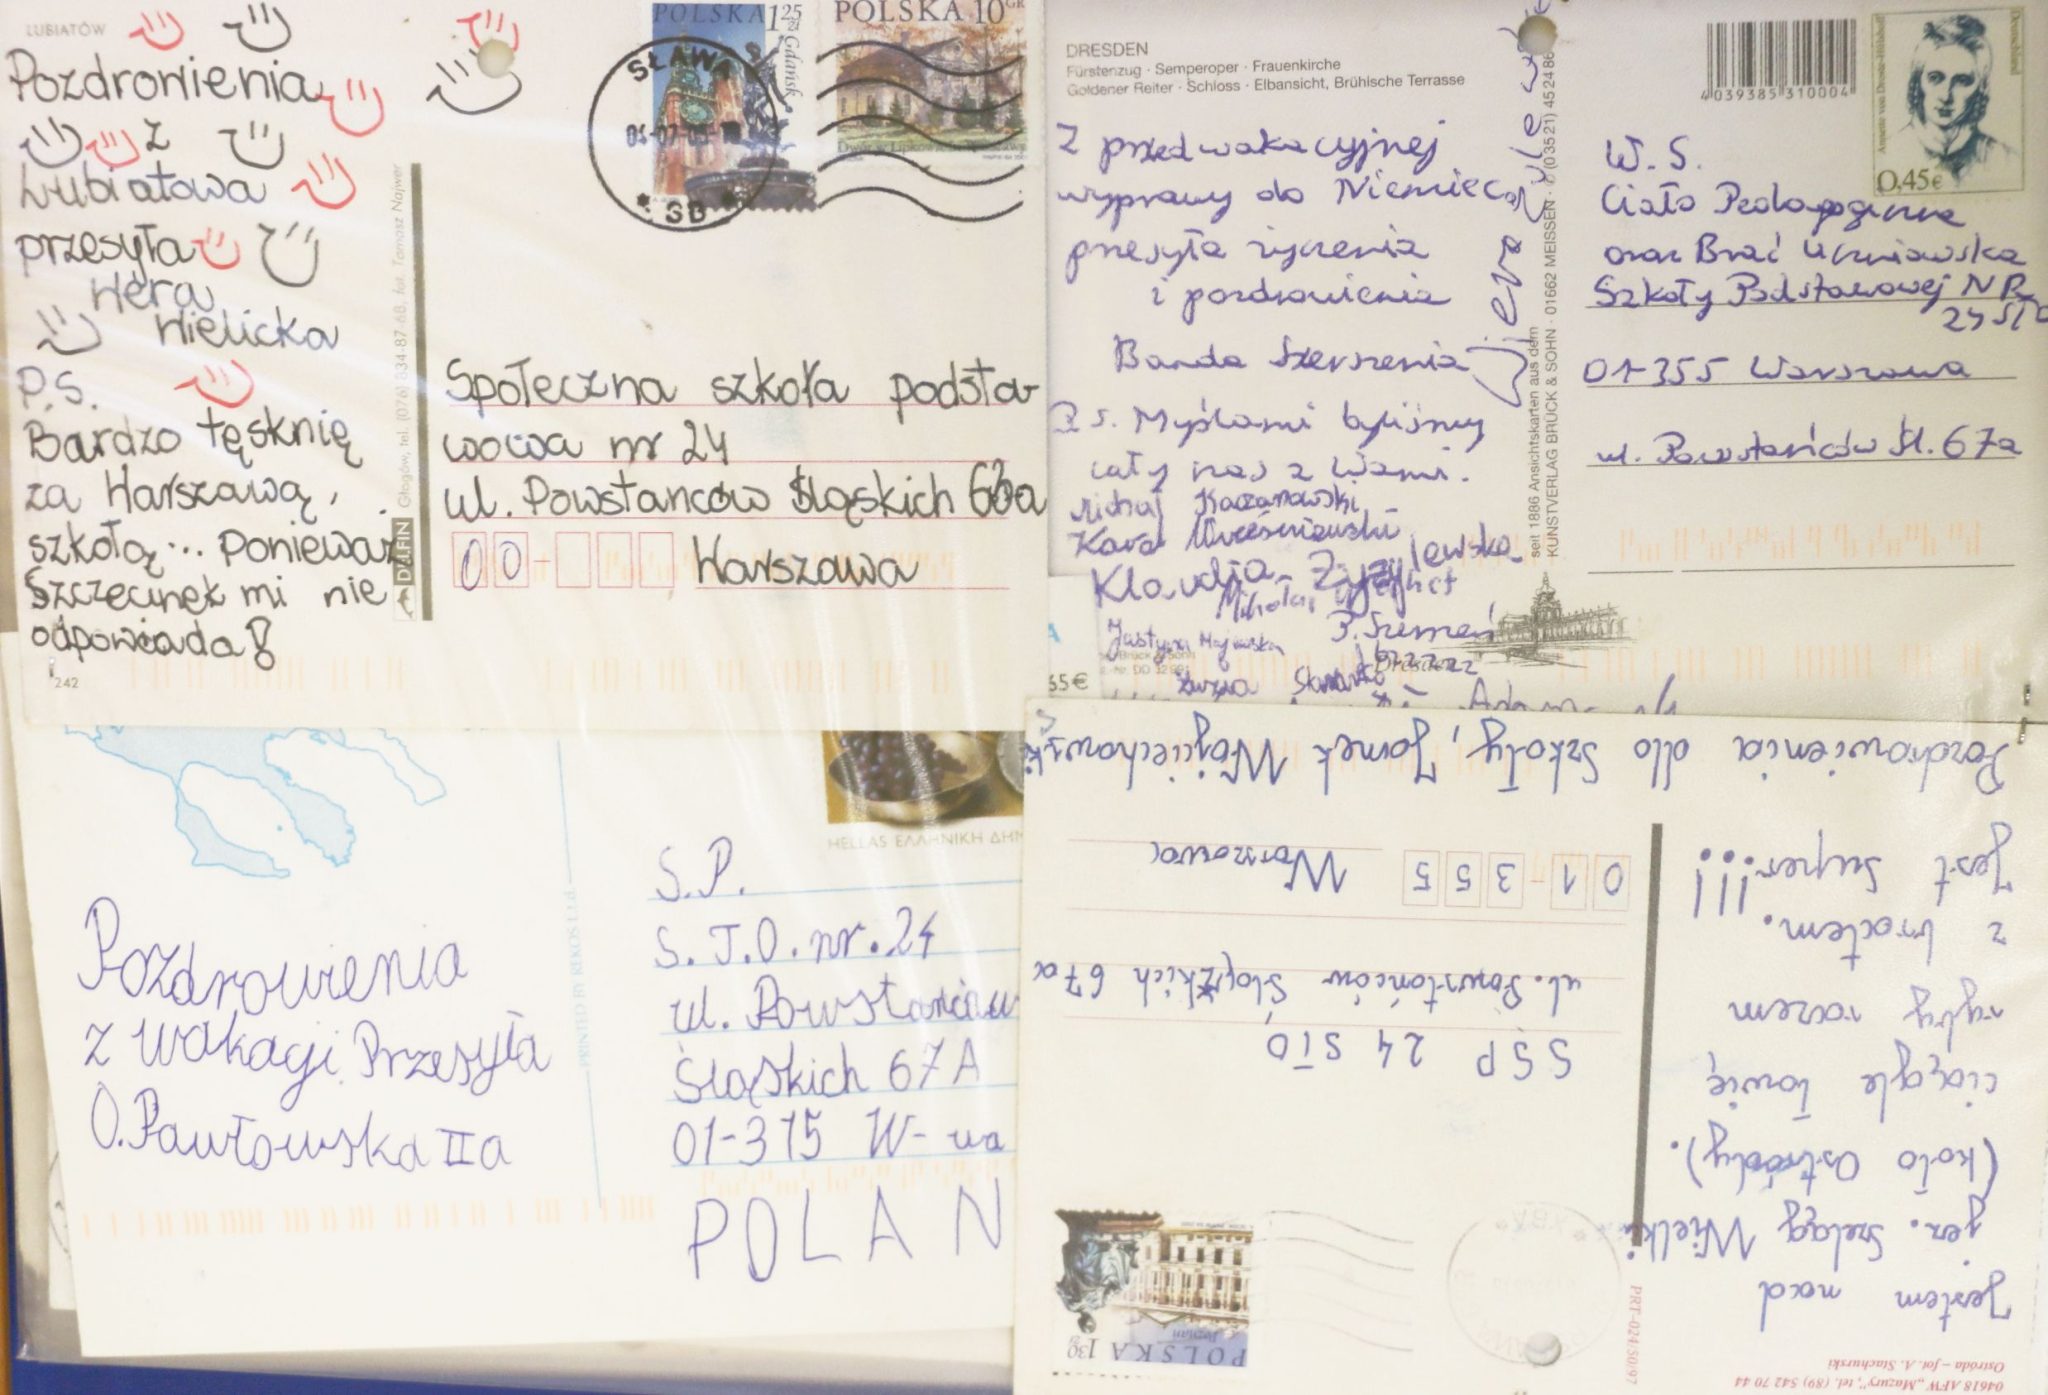 LUBIATÓW
Pozdrowienia
z
Lubiatowa
przesyła
Wera
Wielicka
P.S.
Bardzo tęsknię
za Warszawą,
szkołą... ponieważ
Szczecinek mi nie
odpowiada!
242
DELFIN Głogów, tel. (076) 834-87-68. fot. Tomasz Najwer
POLSKA 1 25 ZŁ
Gdańsk
POLSKA 10 GR
SŁAWA
Społeczna szkoła podsta-
wowa nr 24
ul. Powstanców Śląskich 63a
00- Warszawa
DRESDEN
Fürstenzug · Semperoper · Frauenkirche
Goldener Reiter · Schloss · Elbansicht, Brühlsche Terrasse
4 039385 310004
Annette von Droste-Hülshoff
Deutschland
0,45€
Z przedwakacyjnej
wyprawy do Niemiec
przesyła życzenia
i pozdrowienia
Banda Szerszenia
P.S. Myślami byliśmy
cały czas z Wami.
Michał Kaczanowski
Klaudia Żyzylewska
Mikołaj
Justyna Majewska
P. Szerszeń
bzzzzzz
Zuzia
seit 1886 Ansichtskarten aus dem
KUNSTVERLAG BRÜCK & SOHN · 01662 MEISSEN · (03521) 45 24 86
Dresden
W. S.
Ciało Pedagogiczne
oraz Brać Uczniowska
Szkoły Podstawowej NR
24 STO
01-355 Warszawa
ul. Powstańców Śl. 67a
65€
HELLAS ΕΛΛΗΝΙΚΗ ΔΗΜ
Pozdrowienia
z wakacji Przesyła
O. Pawłowska IIa
PRINTED BY REKOS Ltd.
S.P.
S.T.O. nr. 24
ul. Powstańców
Śląskich 67A
01-315 W-wa
POLAN
04618 AFW „Mazury”, tel. (89) 542 70 44
Ostróda – fot. A. Stachurski
PRT-024/50/97
Jestem nad
jez. Szeląg Wielki
(koło Ostródy).
ciągle łowię
ryby razem
z bratem.
Jest super!!!
Pozdrowienia dla szkoły, Janek Wojciechowski
POLSKA 1 30 ZŁ
Poznań
SSP 24 STO
ul. Powstańców Śląskich 67a
01-355 Warszawa